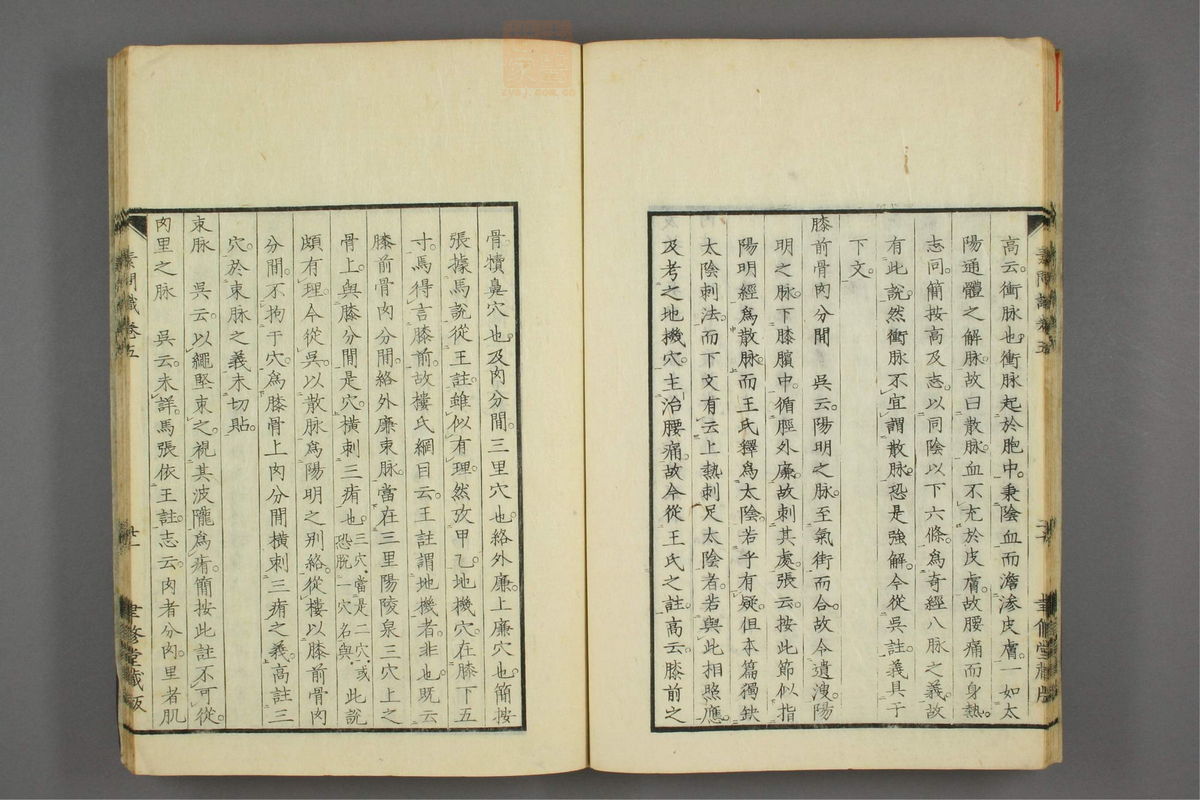 高云。衝脉也。衝脉起於胞中。秉陰血而澹滲皮膚。一如太
陽通體之解脉。故曰散脉。血不充於皮膚。故腰痛而身熱。
志同。簡按高及志。以同陰以下六條。爲奇經八脉之義。故
有此說。然衝脉不宜謂散脉。恐是強解。今從吳註。義具于
下文。
膝前骨肉分間　吳云。陽明之脉。至氣街而合。故今遺溲。陽
明之脉。下膝臏中。循脛外廉。故刺其處。張云。按此節似指
陽明經爲散脉。而王氏釋爲太陰。若乎有疑。但本篇獨缺
太陰刺法。而下文有云上熱刺足太陰者。若與此相照應。
及考之地機穴。主治腰痛。故今從王氏之註。高云。膝前之
骨。犢鼻穴也。及肉分間。三里穴也。絡外廉。上廉穴也。簡按
張據馬說從王註。雖似有理。然攷甲乙。地機穴在膝下五
寸。馬得言膝前。故樓氏綱目云。王註謂地機者。非也。既云
膝前骨肉分間。絡外廉束脉。當在三里陽陵泉三穴上之
骨上。與膝分間是穴。橫刺三痏也。三穴。當是二穴。或恐脫一穴名與 此說
頗有理。今從吳。以散脉爲陽明之別絡。從樓以膝前骨肉
分間。不拘于穴。爲膝骨上肉分間橫刺三痏之義。高註三
穴。於束脉之義未切貼。
束脉　吳云。以繩堅束之。視其波隴爲痏。簡按此註不可從。
肉里之脉　吳云。未詳。馬張依王註。志云。肉者分肉。里者肌
素問識卷五
廿一
聿修堂藏板